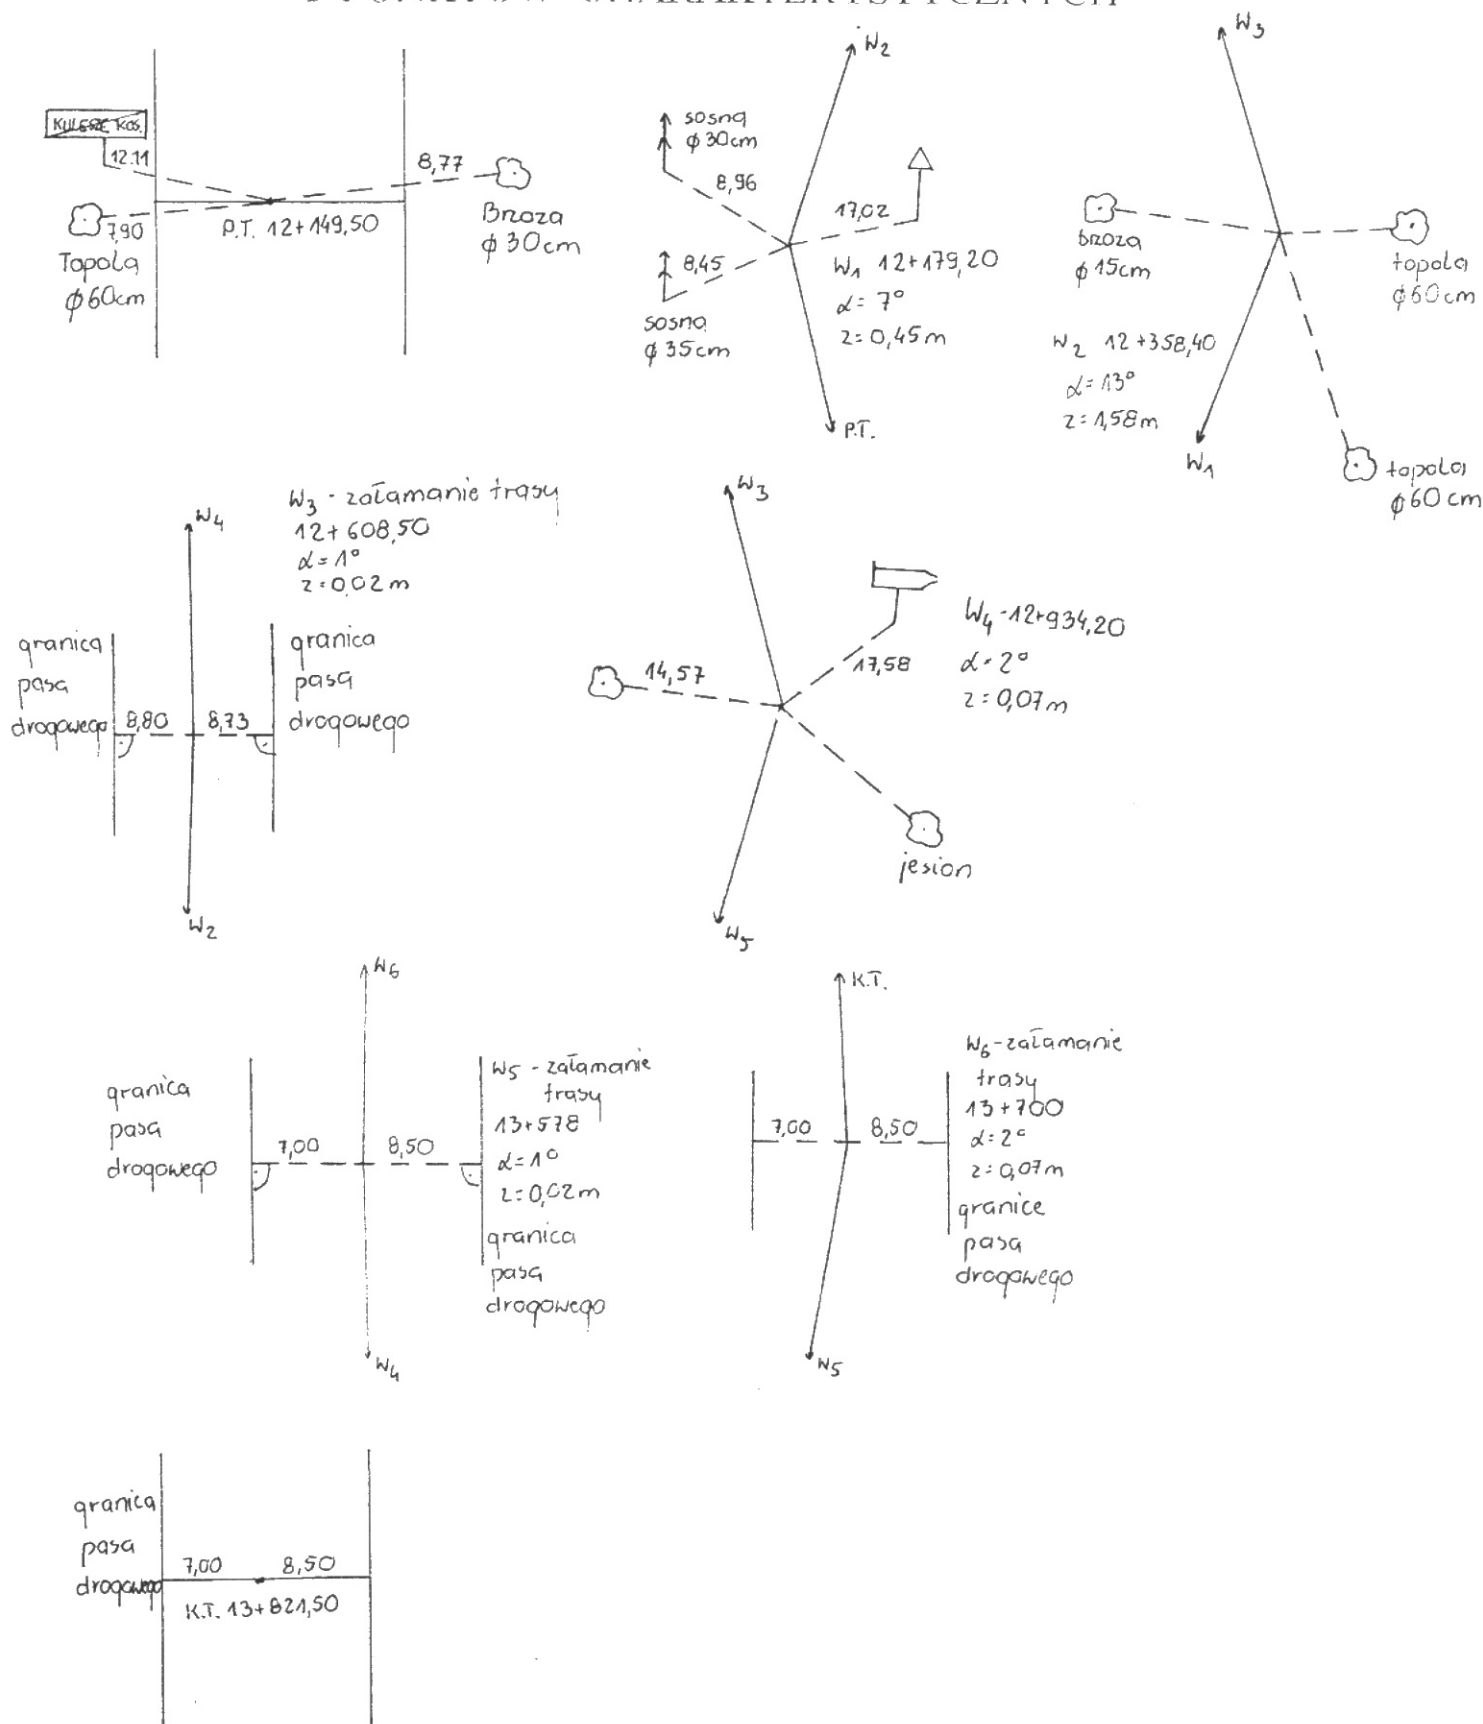 KULESZE KOS.
12.11
8,77
7,90
P.T. 12+149,50
Topola
ϕ60cm
Brzoza
ϕ30cm
W2
sosna
ϕ30cm
8,96
17,02
8,45
sosna
ϕ35cm
W1 12+179,20
α=7°
z=0,45m
P.T.
W3
brzoza
ϕ15cm
topola
ϕ60cm
W2 12+358,40
α=13°
z=1,58m
W1
topola
ϕ60cm
W4
W3 - załamanie trasy
12+608,50
α=1°
z=0,02m
granica
pasa
drogowego
8,80
8,73
granica
pasa
drogowego
W2
W3
14,57
17,58
W4 -12+934,20
α=2°
z=0,07m
jesion
W5
W6
granica
pasa
drogowego
7,00
8,50
W5 - załamanie
trasy
13+578
α=1°
z=0,02m
granica
pasa
drogowego
W4
K.T.
7,00
8,50
W6 - załamanie
trasy
13+700
α=2°
z=0,07m
granice
pasa
drogowego
W5
granica
pasa
drogowego
7,00
8,50
K.T. 13+821,50